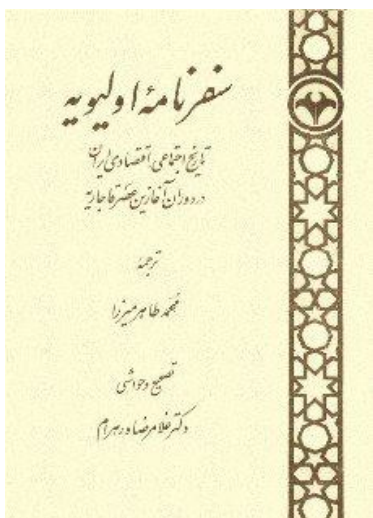 سفرنامهٔ اولیویه
تاریخ اجتماعی اقتصادی ایران
در دوران آغازین عصر قاجاریه
ترجمه
محمد طاهر میرزا
تصحیح و حواشی
دکتر غلامرضا ورهرام